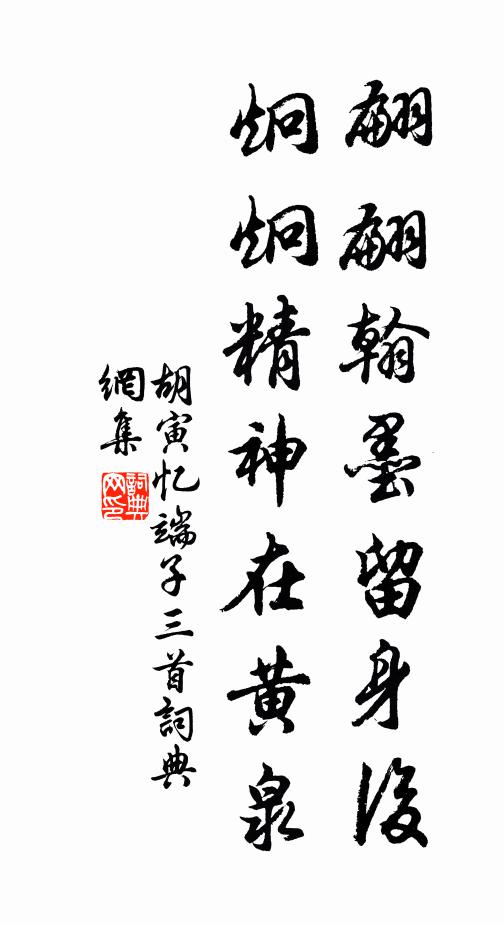 翩翩翰墨留身後
炯炯精神在黄泉
胡寅忆端子三首詞典
網集
詞典
网印